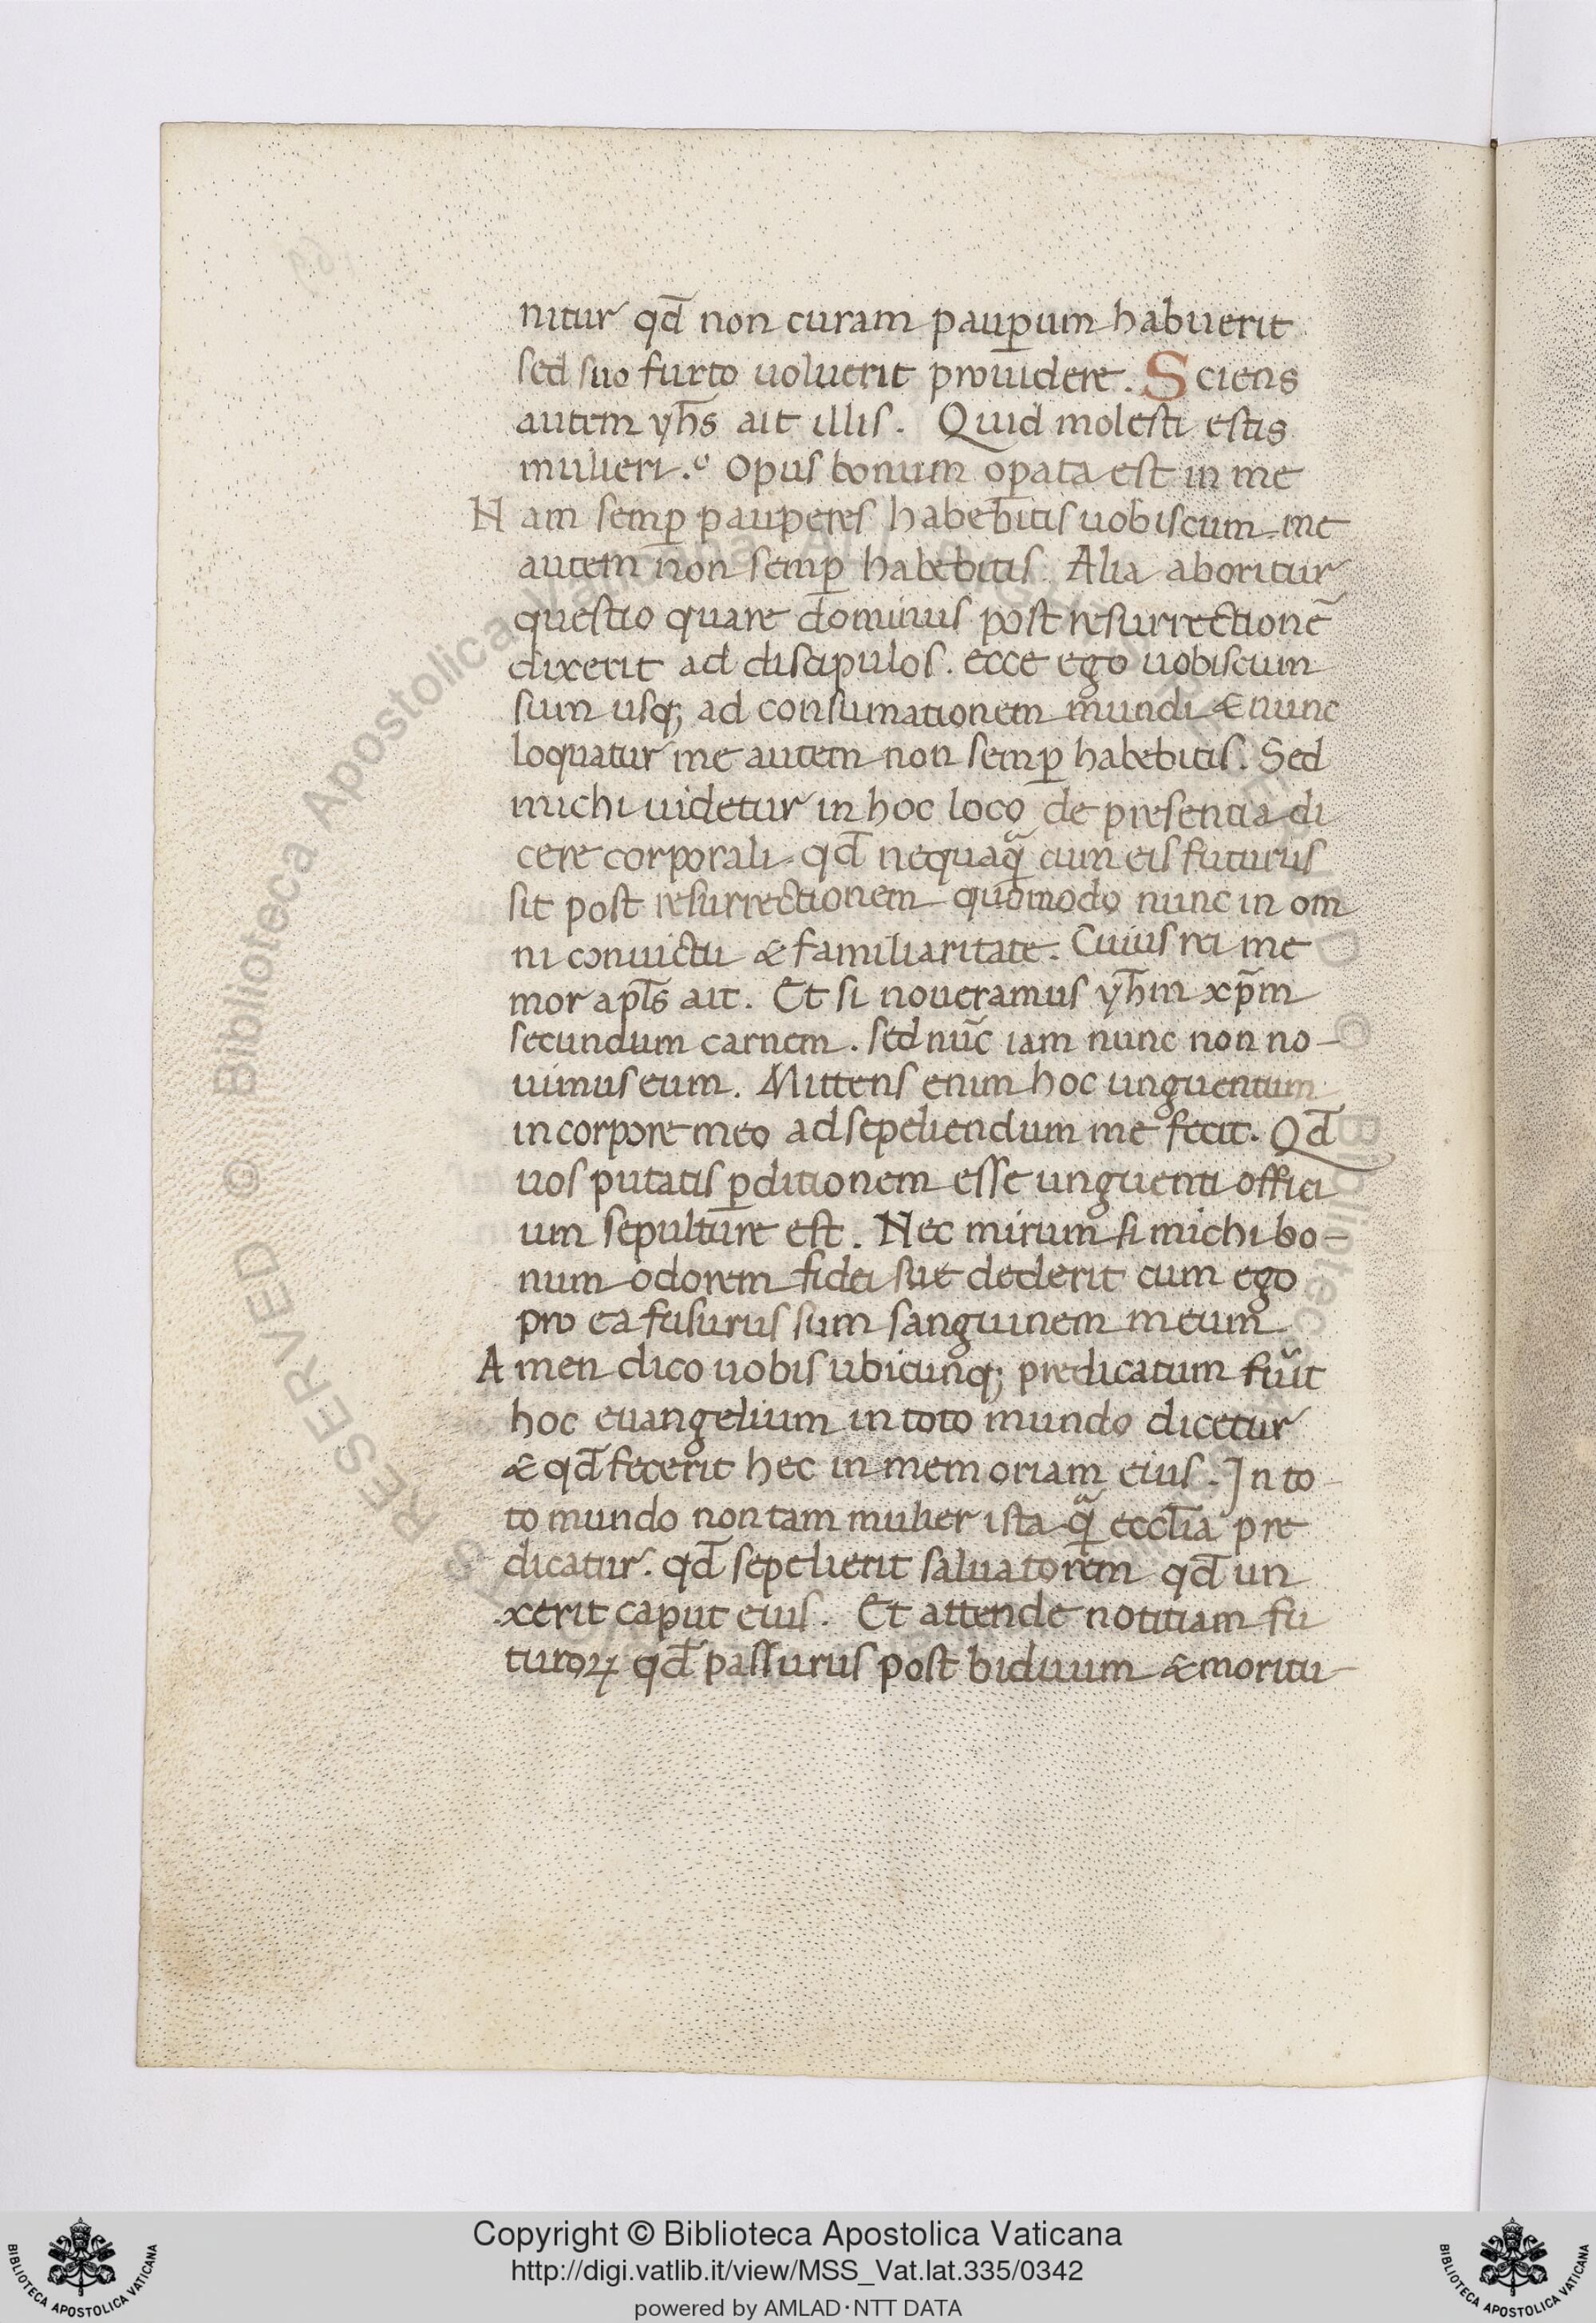 nitur qd̄ non curam paup̄um habuerit
sed suo furto uoluerit prouidere. Sciens
autem yh̄s ait illis. Quid molesti estis
mulieri. Opus bonum op̄ata est in me
Nam semp̄ pauperes habebitis uobiscum me
autem non semp̄ habebitis. Alia aboritur
questio quare dominus post resurrectionē
dixerit ad discipulos. ecce ego uobiscum
sum usq; ad consumationem mundi & nunc
loquatur me autem non semp̄ habebitis. Sed
michi uidetur in hoc loco de presentia di
cere corporali qd̄ nequaq̄ cum eis futurus
sit post resurrectionem quomodo nunc in om
ni conuictu & familiaritate. Cuius rei me
mor apl̄s ait. Et si noueramus yh̄m xp̄m
secundum carnem. sed nūc iam nunc non no-
uimus eum. Mittens enim hoc unguentum
in corpore meo ad sepeliendum me fecit. Qd̄
uos putatis p̄ditionem esse unguenti offici
um sepulture est. Nec mirum si michi bo-
num odorem fidei sue dederit cum ego
pro ea fusurus sum sanguinem meum
Amen dico uobis ubicunq; predicatum fūit
hoc euangelium in toto mundo dicetur
& qd̄ fecerit hec in memoriam eius. In to
to mundo non tam mulier ista q̄ eccl̄ia pre
dicatur. qd̄ sepelierit saluatorem qd̄ un
xerit caput eius. Et attende notitiam fu
turoꝝ qd̄ passurus post biduum & moritu
Copyright © Biblioteca Apostolica Vaticana
http://digi.vatlib.it/view/MSS_Vat.lat.335/0342
powered by AMLAD·NTT DATA
BIBLIOTECA APOSTOLICA VATICANA
BIBLIOTECA APOSTOLICA VATICANA